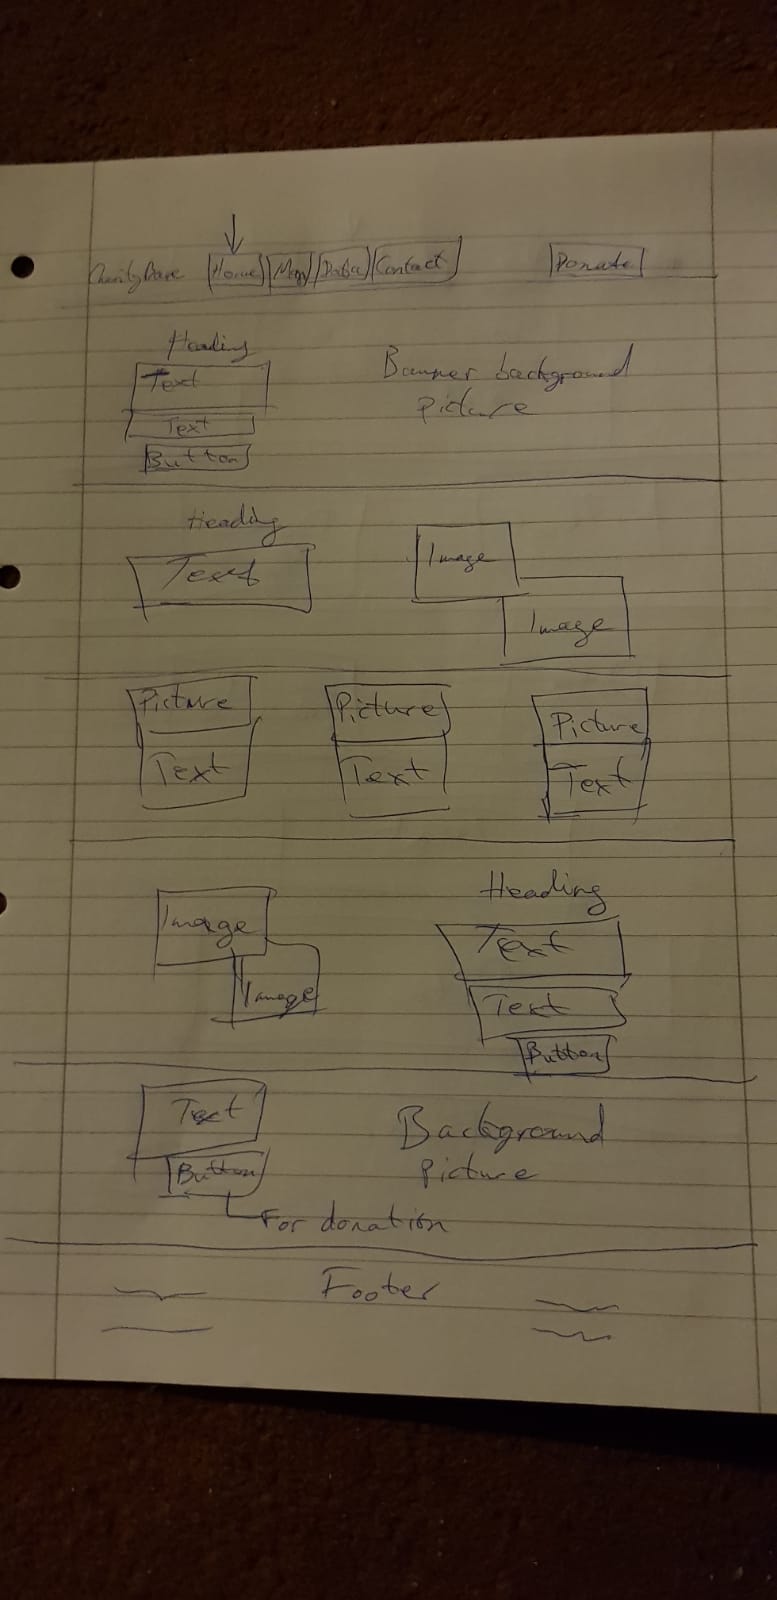 CharityBase Home Map Data Contact Donate
Heading
Text
Text
Button
Banner background
picture
Heading
Text
Image
Image
Picture Picture Picture
Text Text Text
Image
Image
Heading
Text
Text
Button
Text
Button
For donation
Background
picture
Footer